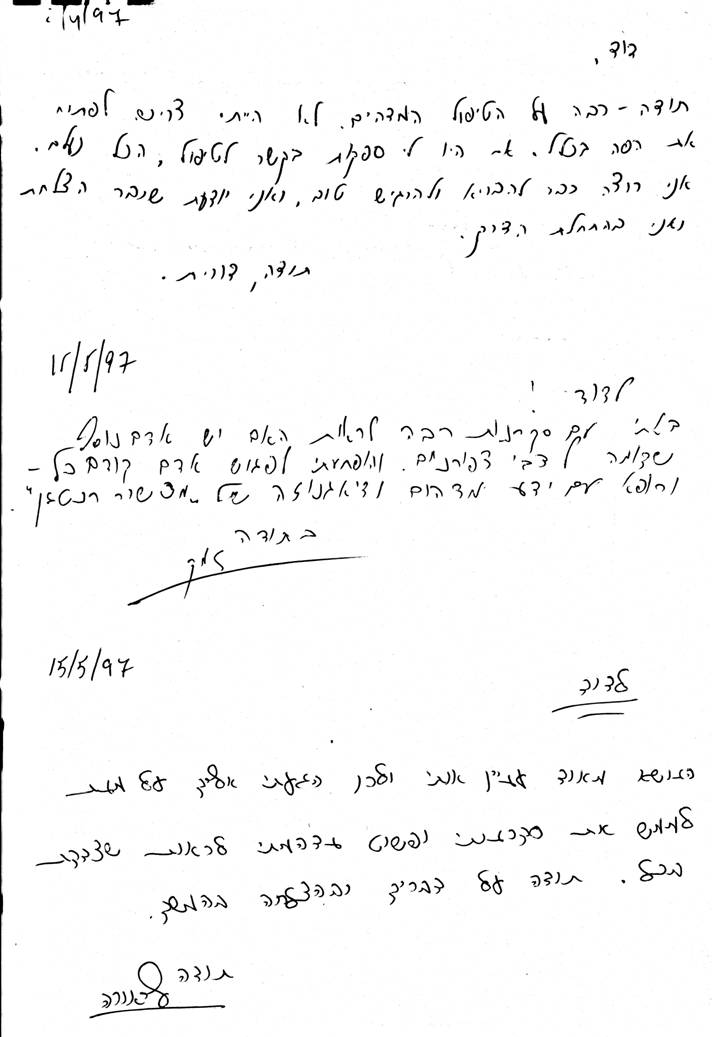 דוד,
תודה-רבה על הטיפול המדהים. לא הייתי צריכה לפתוח
את הפה בכלל. אם היו לי ספקות בקשר לטיפול, הכל נעלם.
אני רוצה כבר להבריא ולהרגיש טוב, ואני יודעת שכבר הצלחת
ואני בהתחלת הדרך.
תודה, דורית.
15/5/97
לדוד!
באתי עם סקרנות רבה לראות האם יש אדם נוסף
שדומה ל והופתעתי לפגוש אדם קודם כל -
ורופא עם ידע מדהים ודיאגנוזה של "מכשיר רנטגן".
בתודה
15/5/97
לדוד
הנושא מאוד עניין אותי ולכן הגעתי אליך על מנת
לממש את סקרנותי ופשוט נדהמתי לראות שצדקת
בכל. תודה על דבריך ובהצלחה בהמשך.
תודה